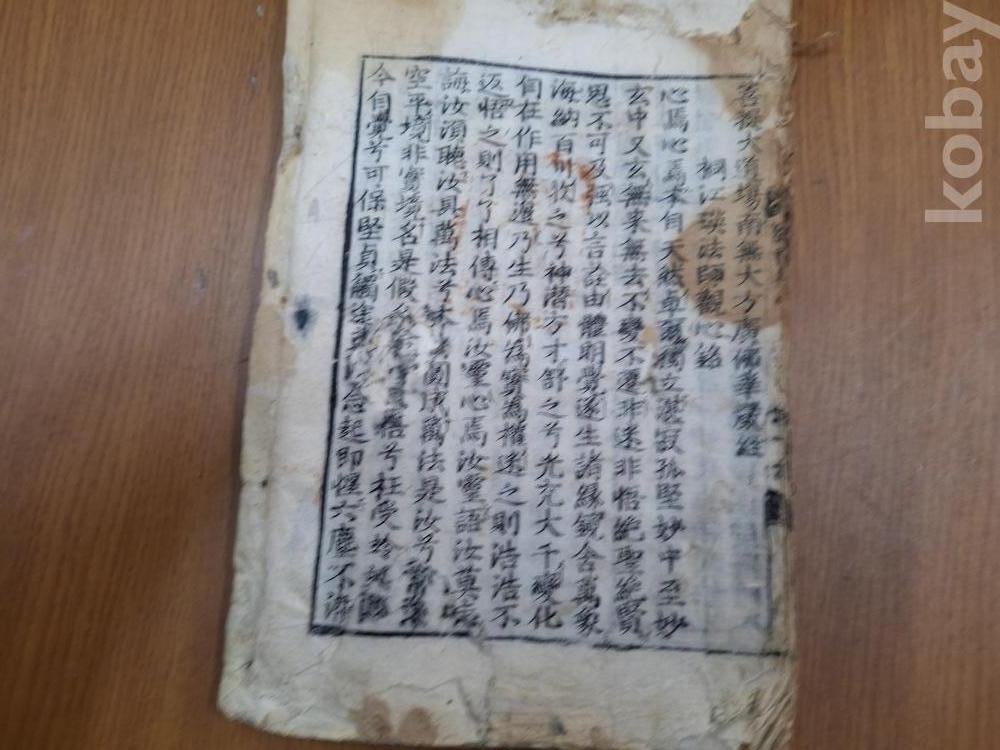 菩提大道場南無大方廣佛華嚴經
桐江瑛法師觀心銘
心焉心焉本自天然卓爾獨立湛寂孤堅妙中至妙
玄中又玄無来無去不變不遷非迷非悟絶聖絶賢
思不可及强以言 由體明覺遂生諸緣鏡含萬象
海納百川 之兮神潛方寸舒之兮光充大千變化
自在作用無邊乃生乃佛為實為權迷之則浩浩不
返悟之則了了相傳心焉汝靈心焉汝靈語汝莫
誨汝須聽汝具萬法兮 法是汝兮
空平境非實境名是假名 悟兮枉受
今自覺兮可保堅貞觸 念起即惺六塵不
kobay